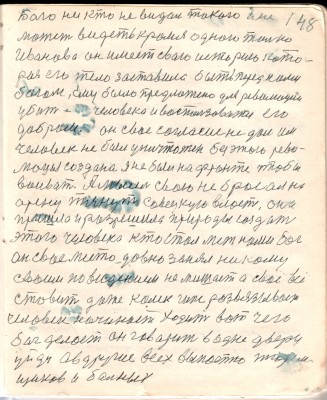 148
Бого никто не видал такого и не
может видеть кромя одного только
Иванова он имеет сваю историю кото-
рая его тело заставила быть перед нами
богом, ему было предложено для революции
убит человека и востользоватц его
добром он свое согласие не дал им
человек не был уничтожен без этого рево-
люция создана я не был на фронте чтобы
воиват. А мысль свою не бросал на
арену тянуть советскую власт, она
пришла и разрешила природы создат
этого человека кто стал меж нами Бог
он свое место довно занял никому
своим поведением не мешает а свое всё
ставит даже колек чие розвязывает
человек начинает ходить вот чего
бог делает он говарит в адне двери
уйди а в другие всех выпостю тюрем-
щиков и балных